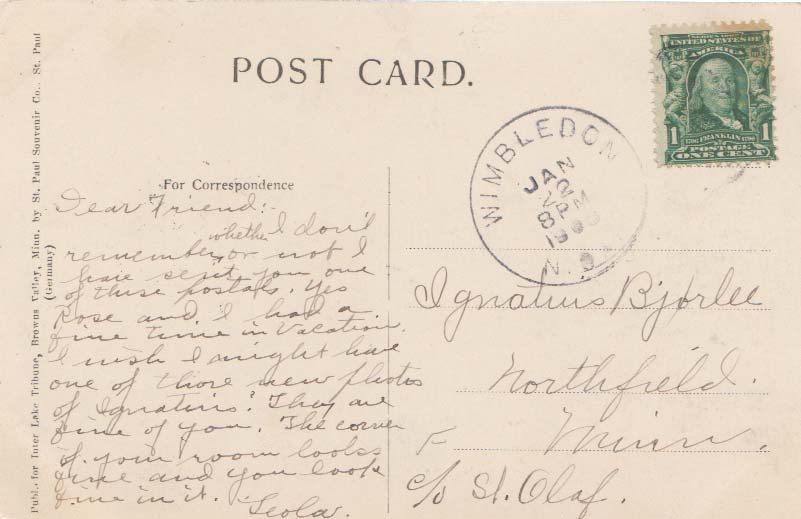 POST CARD.
For Correspondence
Dear Friend:-
I don't
whether
remember or not I
have sent you one
of these postals. Yes
Rose and I had a
fine time in Vacation.
I wish I might have
one of those new photos
of Ignatius. They are
fine of you. The corner
of your room looks
fine and you look
fine in it.
Leola.
Publ. for Inter Lake Tribune, Browns Valley, Minn. by St. Paul Souvenir Co., St. Paul
(Germany)
SERIES 1902
UNITED STATES OF
AMERICA
1 1706 FRANKLIN 1790 1
POSTAGE
ONE CENT
WIMBLEDON
JAN
8 PM
N.D.
Ignatius Bjorlee
Northfield.
Minn.
c/o St. Olaf.